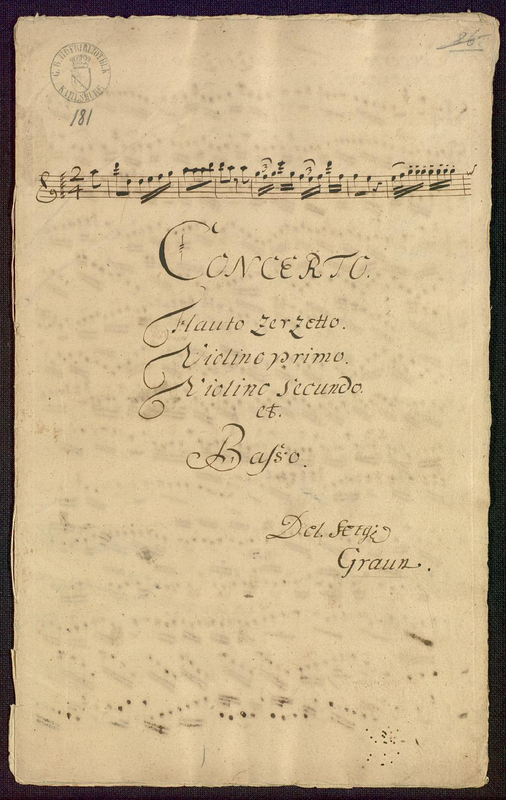 26.
G. H. HOFBIBLIOTHEK
KARLSRUHE
181
2/4
CONCERTO.
Flauto Zerzetto.
Violino primo.
Violino Secundo.
et.
Basso.
Del. Sergi
Graun.